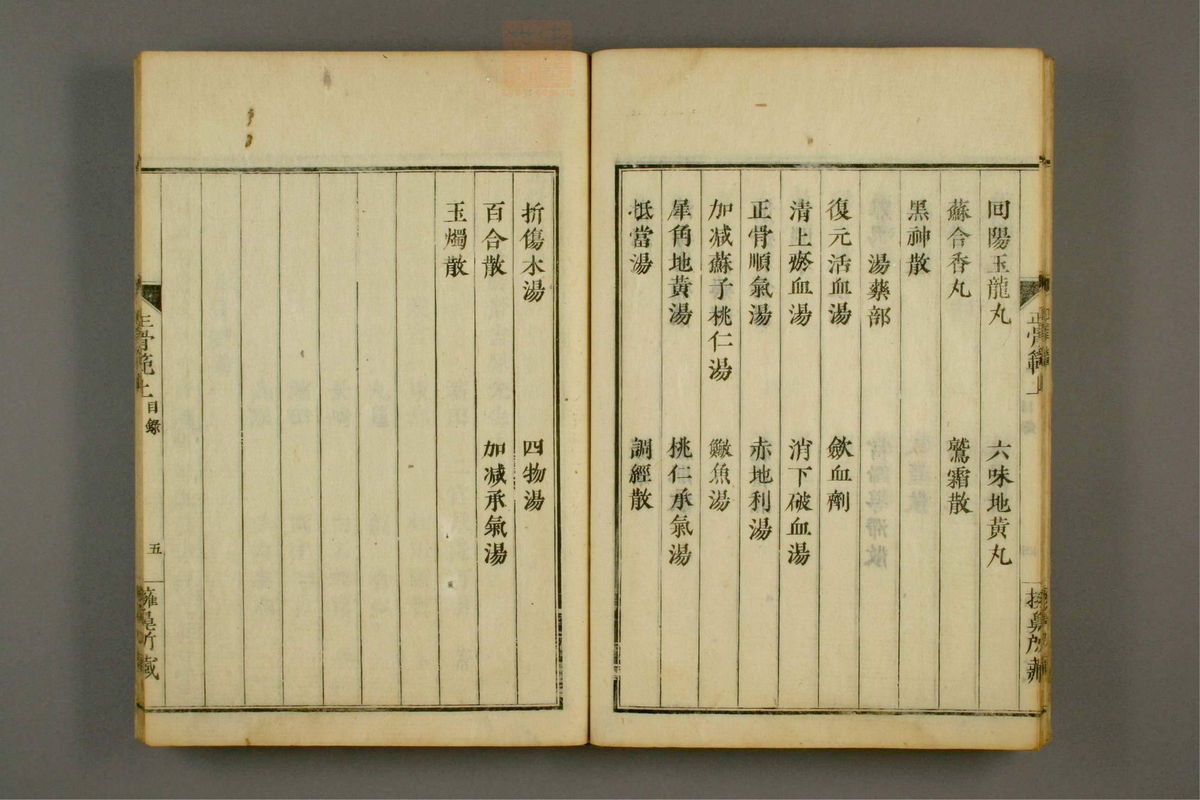 回陽玉龍丸
六味地黄丸
蘇合香丸
鷲霜散
黒神散
湯藥部
復元活血湯
歛血劑
清上瘀血湯
消下破血湯
正骨順氣湯
赤地利湯
加减蘇子桃仁湯
鱮魚湯
犀角地黄湯
桃仁承氣湯
抵當湯
調經散
折傷木湯
四物湯
百合散
加减承氣湯
玉燭散
正骨範上
目錄
五